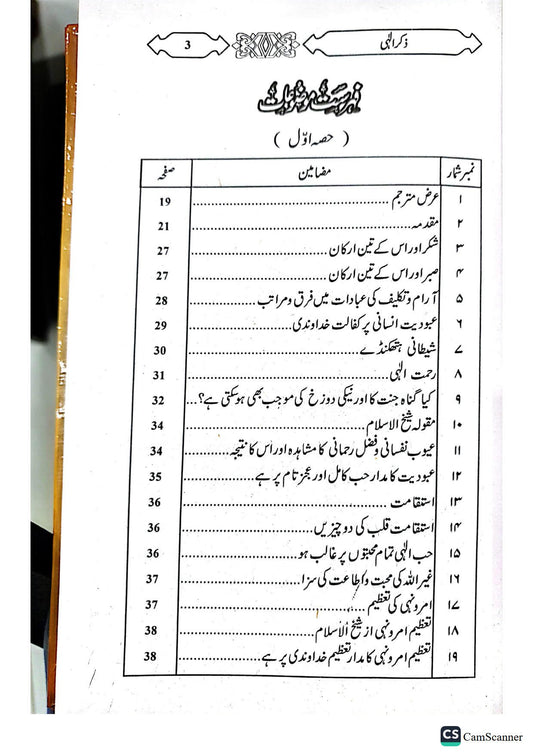 ذکر الٰہی 3
فہرست موضوعات
( حصہ اوّل )
نمبر شمار مضامین صفحہ
۱ عرض مترجم 19
۲ مقدمہ 21
۳ شکر اور اس کے تین ارکان 27
۴ صبر اور اس کے تین ارکان 27
۵ آرام و تکلیف کی عبادات میں فرق و مراتب 28
۶ عبودیت انسانی پر کفالت خداوندی 29
۷ شیطانی ہتھکنڈے 30
۸ رحمت الٰہی 31
۹ کیا گناہ جنت کا اور نیکی دوزخ کی موجب بھی ہوسکتی ہے؟ 32
۱۰ مقولہ شیخ الاسلام 34
۱۱ عیوب نفسانی و فضل رحمانی کا مشاہدہ اور اس کا نتیجہ 34
۱۲ عبودیت کا مدار حب کامل اور عجز تام پر ہے 35
۱۳ استقامت 36
۱۴ استقامت قلب کی دو چیزیں 36
۱۵ حب الٰہی تمام محبتوں پر غالب ہو 36
۱۶ غیر اللہ کی محبت و اطاعت کی سزا 37
۱۷ امر و نہی کی تعظیم 37
۱۸ تعظیم امر و نہی از شیخ الاسلام 38
۱۹ تعظیم امر و نہی کا مدار تعظیم خداوندی پر ہے 38
CS CamScanner